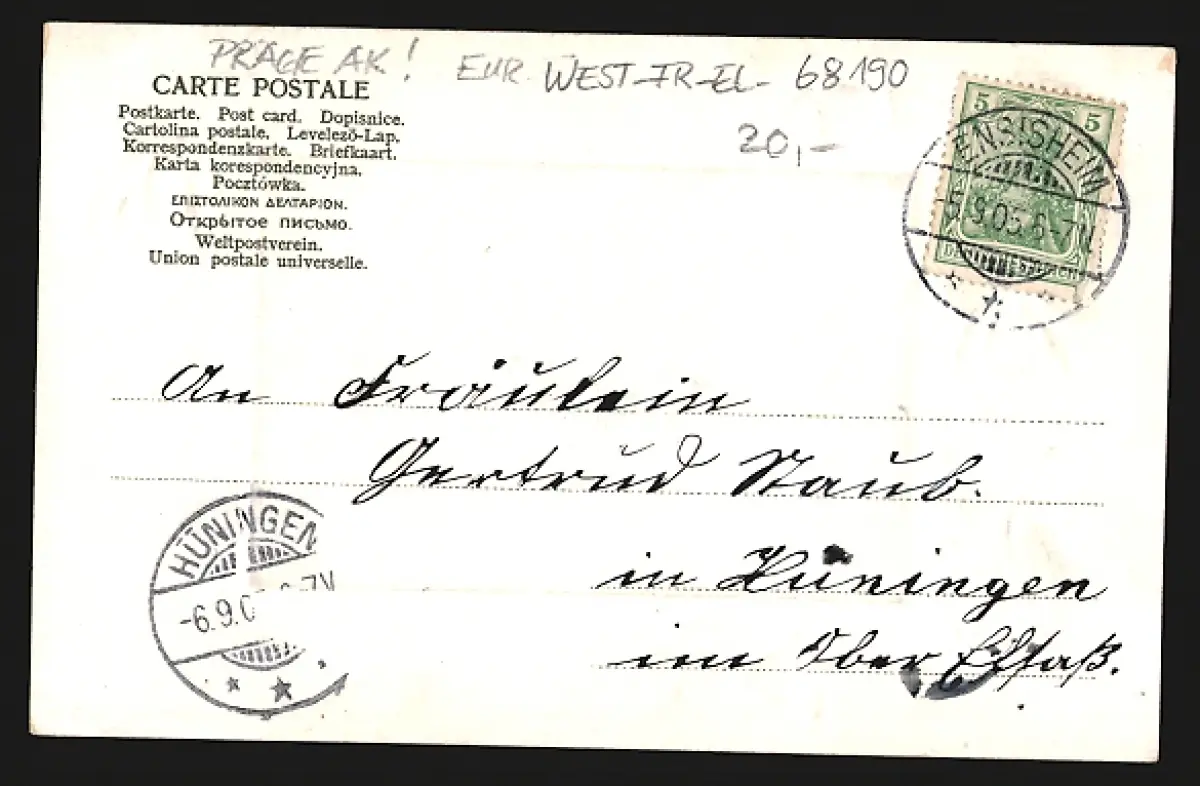 PRÄGE AK! EUR. WEST-FR-EL- 68190
20,-
CARTE POSTALE
Postkarte. Post card. Dopisnice.
Cartolina postale. Levelező-Lap.
Korrespondenzkarte. Briefkaart.
Karta korespondencyjna.
Pocztówka.
ΕΠΙΣΤΟΛΙΚΟΝ ΔΕΛΤΑΡΙΟΝ.
Открытое письмо.
Weltpostverein.
Union postale universelle.
5 5
ENSISHEIM
-5.9.05.6-7N
An Fräulein
Gertrud Staub.
in Hüningen
im Ober Elsaß.
HÜNINGEN
-6.9.0